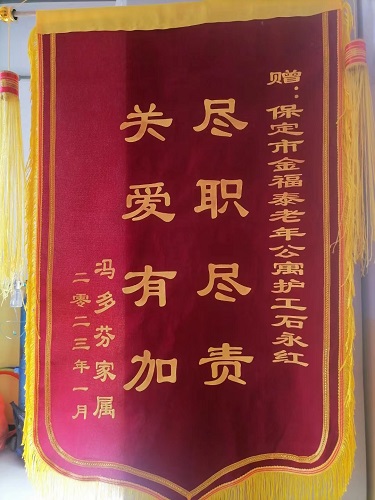 赠：保定市金福泰老年公寓护工石永红
尽职尽责
关爱有加
冯多芬家属
二零二三年一月